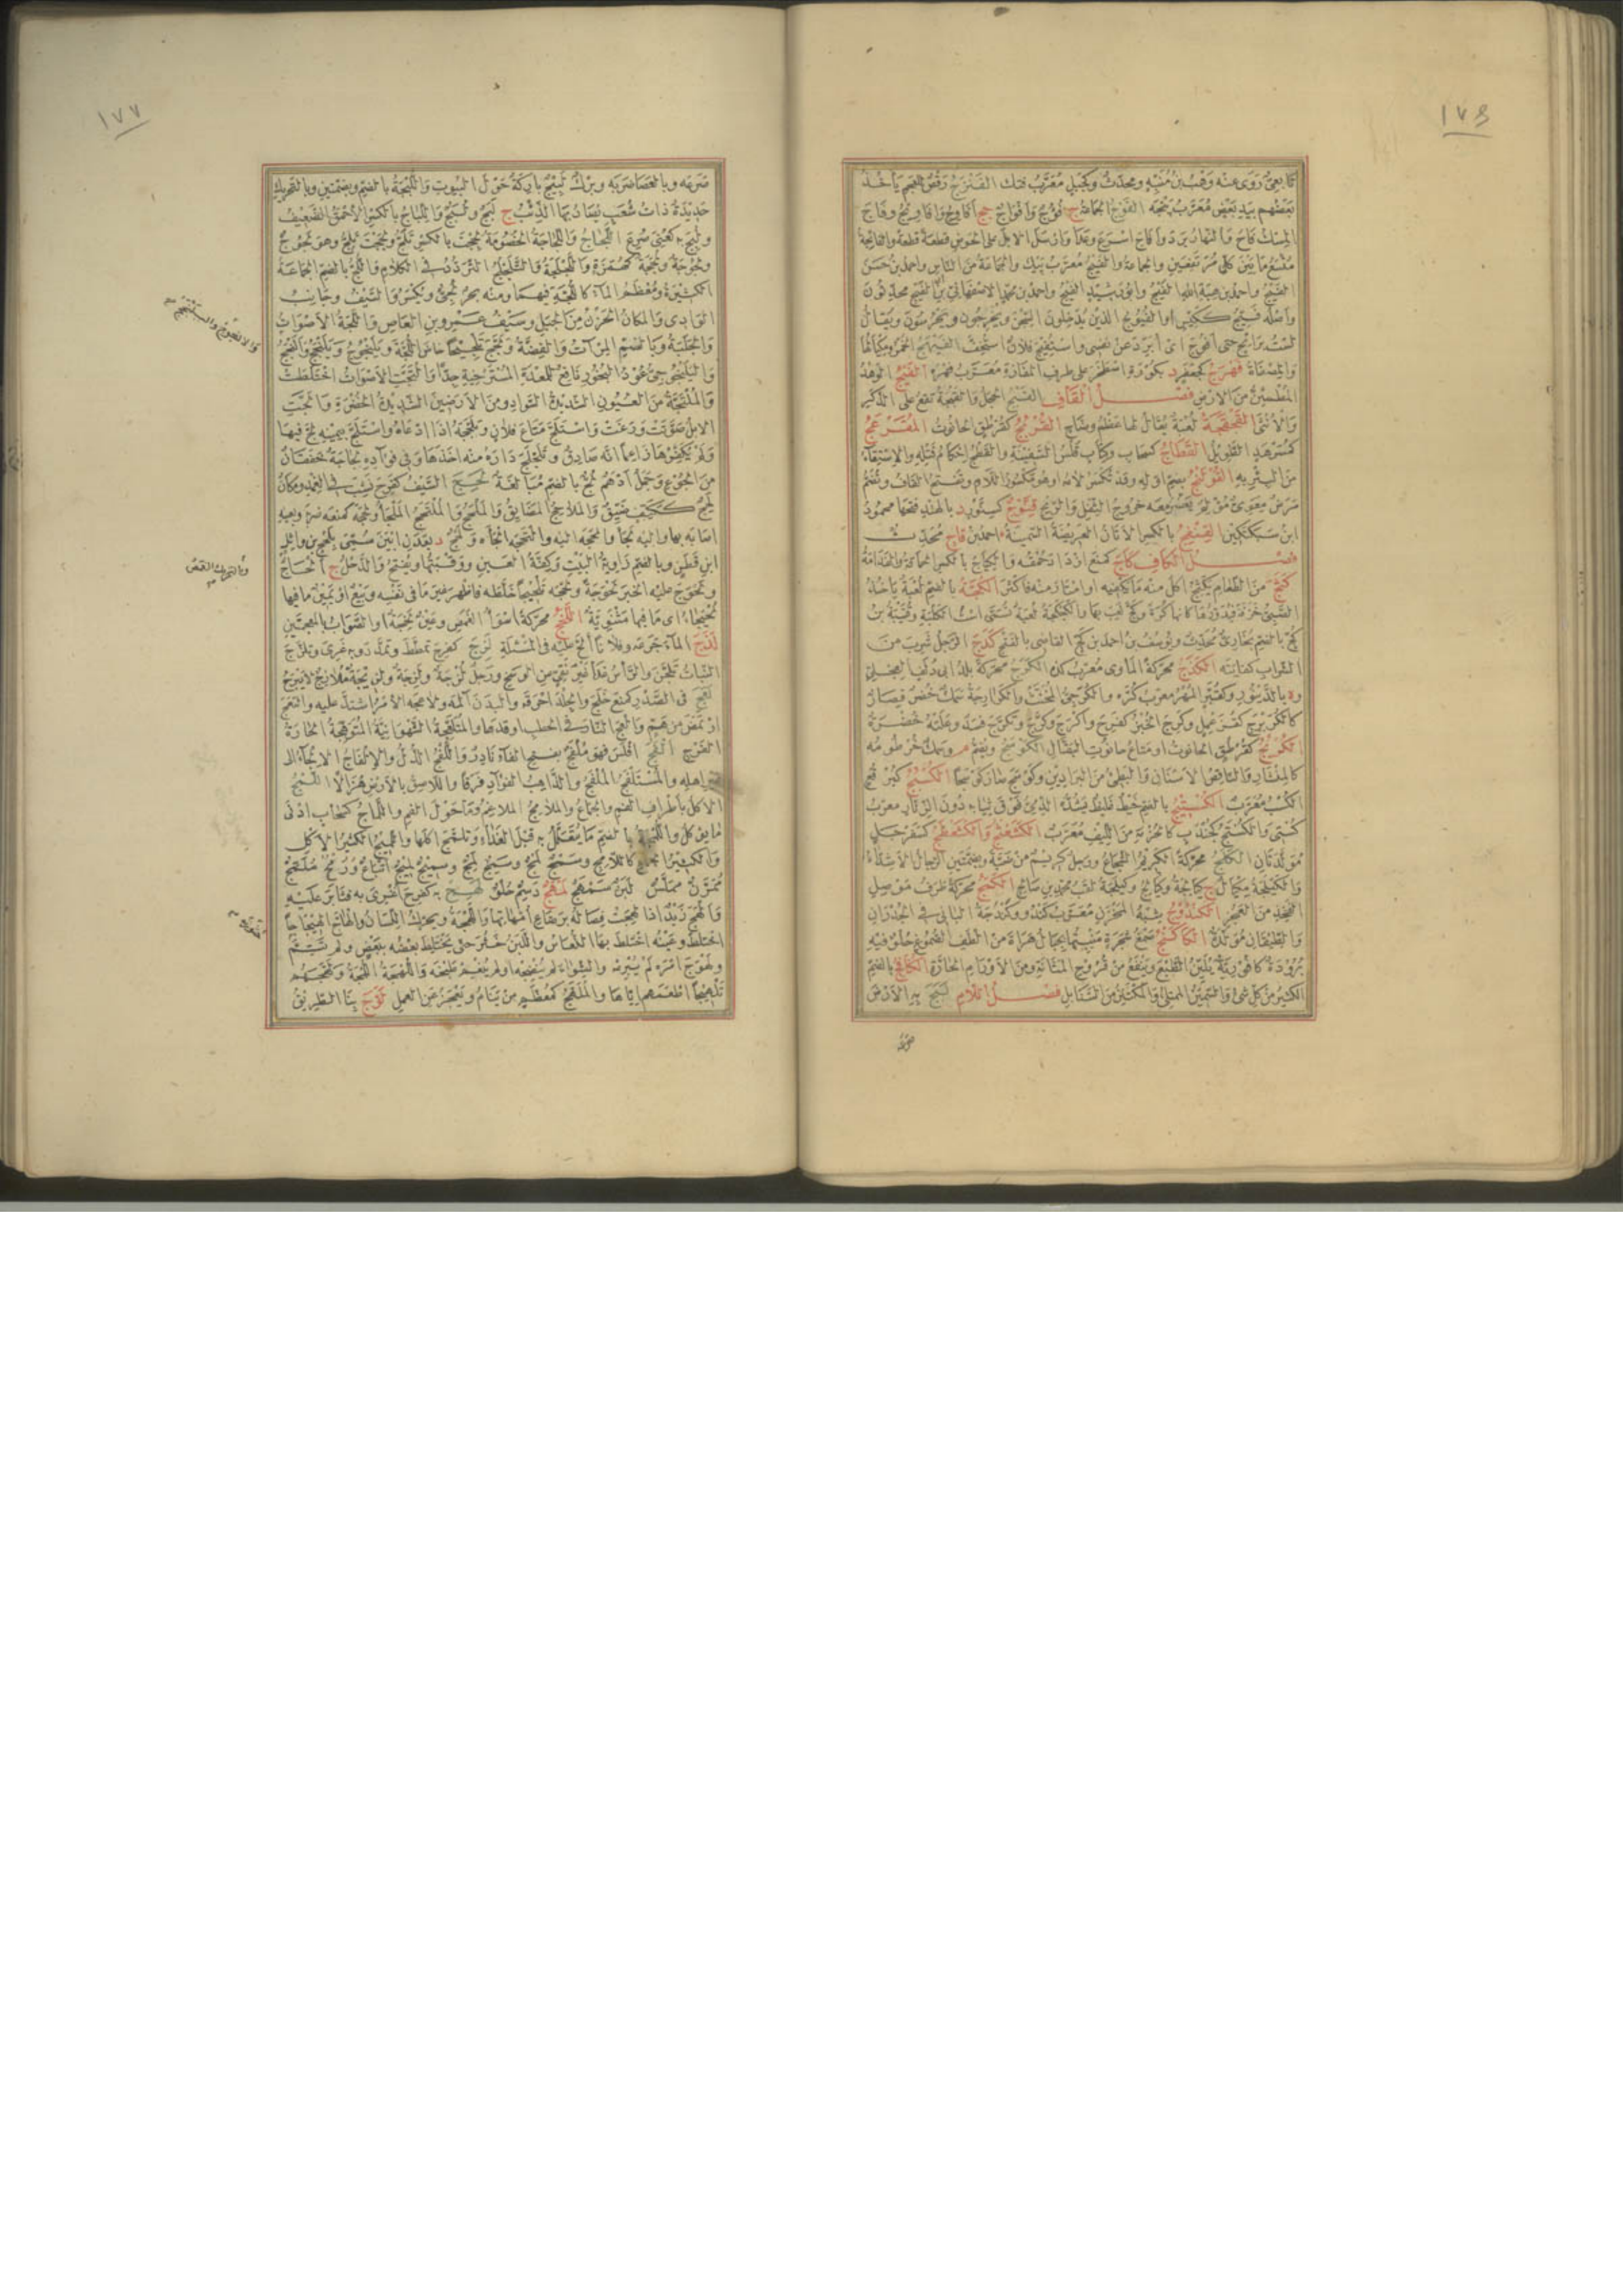 ١٧٦
تابعىّ روى عنه وهب بن منبّه ومحدّث وكجبل معرّب فنك الفنزج رقص للعجم يأخذ
بعضهم بيد بعض معرّب پنجه الفوج الجماعة ج فؤوج وأفواج جج أفاوج وأفاويج وفاج
المسك فاح والنهار برد وأفاج أسرع وعدا وأرسل الابل على الحوض قطعة قطعة والفائجة
متّسع ما بين كل مرتفعين والجماعة والفيج معرّب پيك والجماعة من الناس واحمد بن حسن
الفيج واحمد بن هبة الله الفيج وأبو رشيد الفيج واحمد بن محمد الاصفهانى بن الفيج محدّثون
وأصله فيّج ككيّس أو الفيوج الذين يدخلون السجن ويخرجون ويحرسون ويقال
لست برائح حتى أفوّج أى أبرد عن نفسى واستفيج فلان استخفّ الفيهج الخمر ومكيالها
والمصفاة فهرج كجعفر د بكورة اصطخر على طرف المفازة معرّب فهره الفيج الوهد
المطمئنّ من الارض فصل القاف القبج الحجل والقبجة تقع على الذكر
والأنثى القجقجة لعبة يقال لها عظم وضّاح القربج كقرطق الحانوت المقرعج
كمسرهد الطويل القطاج كسحاب وكتاب قلس السفينة والقطج إحكام فتله والاستقاء
من البئر به القولنج بضم أوله وقد تكسر لامه أو هو مكسور اللام وتفتح القاف وتضم
مرض معوى مؤلم يعسر معه خروج الثفل والريح قنّوج كسنّور د بالهند فتحها محمود
ابن سبكتكين القنفج بالكسر الاتان العريضة السمينة احمد بن قاج محدّث
فصل الكاف كأج كمنع ازداد حمقه والكياج بالكسر الحماقة والفدامة
كثج من الطعام يكثج أكل منه ما يكفيه أو امتار منه فأكثر الكجّة بالضم لعبة يأخذ
الصبىّ خرقة فيدوّرها كأنها كرة وكجّ لعب بها والكجكجة لعبة تسمّى است الكلبة وقتيبة بن
كجّ بالضم بخارىّ محدّث ويوسف بن احمد بن كجّ القاضى بالفتح كدج الرجل شرب من
الشراب كفايته الكذج محرّكة المأوى معرّب كده الكرج محرّكة بلد أبى دلف العجلىّ
وة بالدينور وكقبّر المهر معرّب كرّه والكرّجىّ المخنّث والكرارجة سمك خضر قصار
كالكريرج كقزعمل وكرج الخبز كفرح واكترج وكرّج وتكرّج فسد وعلته خضرة
الكربج كقرطق الحانوت أو متاع حانوت البقّال الكوسج ويضم م وسمك خرطومه
كالمنشار والناقص الاسنان والبطىء من البراذين وكوسج صار كوسجا الكسبج كبرقع
الكسب معرّب الكستيج بالضم خيط غليظ يشدّه الذمّىّ فوق ثيابه دون الزنّار معرّب
كستى والكستج كجندب كالحزمة من الليف معرّب الكشعثج والكشعظج كسفرجل
مولّدتان الكلج محرّكة الكريم الشجاع ورجل كريم من ضبّة وبضمتين الرجال الاشدّاء
والكيلجة مكيال ج كيالجة وكيالج وكيلجة لقب محمد بن صالح الكمج محرّكة طرف موصل
الفخذ من العجز الكندوج شبه المخزن معرّب كندو وكندجة البانى فى الجدران
والطيقان مولّدة الكاكنج صمغ شجرة منبتها بجبال هراة من ألطف الصموغ حلو فيه
برودة كافورية يليّن الطبع وينفع من قروح المثانة ومن الاورام الحارّة الكنافج بالضم
الكثير من كل شىء والسمين الممتلئ والمكتنز من السنابل فصل اللام لبج به الارض
صرعه
١٧٧
صرعه وبالعصا ضربه وبرك لبيج باركة حول البيوت واللبجة بالضم وبضمتين وبالتحريك
حديدة ذات شعب يصاد بها الذئب ج لبج ولبج واللباج بالكسر الاحمق الضعيف
ولبج به كعنى صرع اللجاج واللجاجة الخصومة لججت بالكسر تلجّ ولججت تلجّ وهو لجوج
ولجوجة ولججة كهمزة واللجلجة والتلجلج التردّد فى الكلام واللجّ بالضم الجماعة
الكثيرة ومعظم الماء كاللجّة فيهما ومنه بحر لجّىّ ويكسر والسيف وجانب
الوادى والمكان الحزن من الجبل وسيف عمرو بن العاص واللجّة الاصوات
والجلبة وبالضم المرآة والفضّة ولجّج تلجيجا خاض اللجّة ويلنجوج ويلنجج وألنجج
واليلنجوجىّ عود البخور نافع للمعدة المسترخية جدّا والتجّت الاصوات اختلطت
والملتجّة من العيون الشديدة السواد ومن الارضين الشديدة الخضرة وألجّت
الابل صوّتت ورغت واستلجّ متاع فلان وتلجّجه اذا ادّعاه واستلجّ بيمينه لجّ فيها
ولم يكفّرها زاعما أنه صادق وتلجلج داره منه أخذها وفى فؤاده لجاجة خفقان
من الجوع وجمل أدهم لجّ بالضم مبالغة لحج السيف كفرح نشب فى الغمد ومكان
لحج ككتف ضيّق والملاحج المضايق والملحج والملتحج الملجأ ولحجه كمنعه ضربه وبعينه
أصابه بها واليه لجأ وألحجه اليه والتحجه ألجأه ولحج د بعدن أبين سمّى بلحج بن وائل
ابن قطن وبالضم زاوية البيت وكفّة العين ووقبتها ويفتح والدحل ج ألحاج
ولحوج عليه الخبر لحوجة ولحّجه تلحيجا خلّطه فأظهر غير ما فى نفسه وبيع أو يمين ما فيها
لحيجاء أى ما فيها مثنوية اللخج محرّكة أسوأ الغمص وعين لخجة أو الصواب بالمهملتين
لذج الماء جرعه وفلانا ألحّ عليه فى المسئلة لزج كفرح تمطّط وتمدّد وبه غرى وتلزّج
النبات تلجّن والرأس غدا غير نقىّ من الوسخ ورجل لزجة ولزجة ولزيجة ملازم لا يبرح
لعج فى الصدر كمنع خلج والجلد أحرقه والبدن آلمه ولاعجه الأمر اشتدّ عليه والتعج
ارتمض من همّ وألعج النار فى الحطب أوقدها والمتلعّجة الشهوانية المتوهّجة الحارّة
الفرج ألفج أفلس فهو ملفج بفتح الفاء نادر واللفج الذلّ والالفاج الالجاء الى
غير أهله والمستلفج الملفج والذاهب الفؤاد فرقا واللاصق بالارض هزالا اللمج
الاكل بأطراف الفم والجماع والملامج الملاغم وما حول الفم واللماج كسحاب أدنى
ما يؤكل واللمجة بالضم ما يتعلّل به قبل الغداء وتلمّج أكلها واللميج الكثير الاكل
والكثير الجماع كاللامج وسمج لمج وسمج لمج وسميج لميج اتباع ورمح ملمّج
ممرّن مملّس لبن سمهج لمهج دسم حلو لهج به كفرح أغرى به فثابر عليه
وألهج زيد اذا لهجت فصاله برضاع أمّهاتها واللهجة ويحرّك اللسان والهاجّ الهيجاجا
اختلط وعينه اختلط بها النعاس واللبن خثر حتى يختلط بعضه ببعض ولم تتمّ
ولهوج أمره لم يبرمه والشواء لم ينضجه أو لم ينعم طبخه واللهجة اللمجة ولهّجهم
تلهيجا أطعمهم إيّاها والملهّج كمعظّم من ينام ويعجز عن العمل لوّج بنا الطريق